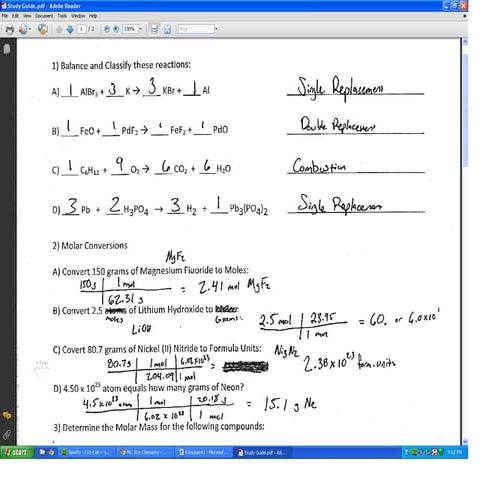 Study Guide.pdf - Adobe Reader
File Edit View Document Tools Window Help
1 / 2
Find
1) Balance and Classify these reactions:
A) 1 AlBr₃ + 3 K → 3 KBr + 1 Al Single Replacement
B) 1 FeO + 1 PdF₂ → 1 FeF₂ + 1 PdO Double Replacement
C) 1 C₆H₁₂ + 9 O₂ → 6 CO₂ + 6 H₂O Combustion
D) 3 Pb + 2 H₃PO₄ → 3 H₂ + 1 Pb₃(PO₄)₂ Single Replacement
2) Molar Conversions
MgF₂
A) Convert 150 grams of Magnesium Fluoride to Moles:
150g 1 mol = 2.41 mol MgF₂
62.31 g
B) Convert 2.5 of Lithium Hydroxide to
moles LiOH Grams:
2.5 mol 23.95 = 60. or 6.0x10¹
1 mol
C) Covert 80.7 grams of Nickel (II) Nitride to Formula Units: Ni₃N₂
80.7g 1 mol 6.02x10²³ =
204.09 1 mol
2.38 x 10²³ form. units
D) 4.50 x 10²³ atom equals how many grams of Neon?
4.5x10²³ atom 1 mol 20.18g = 15.1 g Ne
6.02 x 10²³ 1 mol
3) Determine the Molar Mass for the following compounds:
start
Spotify - Cris Cab -
Mr. Chemistry -
Document1 - Microsof...
Study Guide.pdf - Ad...
9:02 PM